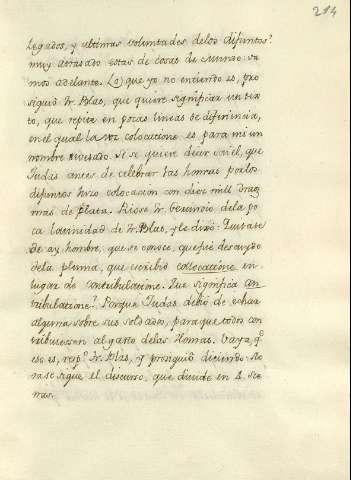 214
legados, y ultimas voluntades delos difuntos?
muy atrasado estas de cosas de mundo va
mos adelante. Lo que yo no entiendo es, pro
siguió Fr. Blas, que quiere significar un tex
to, que repite en pocas lineas de diferiencia,
en el qual la voz colocatione es para mi un
nombre revesado. Si se quiere decir con el, que
Judas antes de celebrar las honras por los
difuntos hizo colocacion con doce mil drag
mas de plata. Riose Fr. Gerundio dela po
ca latinidad de Fr. Blas, y le dixo: Quitate
de ay hombre, que se conoce, que fue descuydo
dela pluma, que escribió collocatione en
lugar de contribulatione. Que significa con
tribulatione? Porque Judas debió de echar
alguna sobre sus soldados, para que todos con
tribuiesen al gasto delas Honras. Vaya, qe
eso es, respo Fr. Blas, y prosiguió diciendo: Ao
ra se sigue el discurso, que divide en 4. Sce
nas.